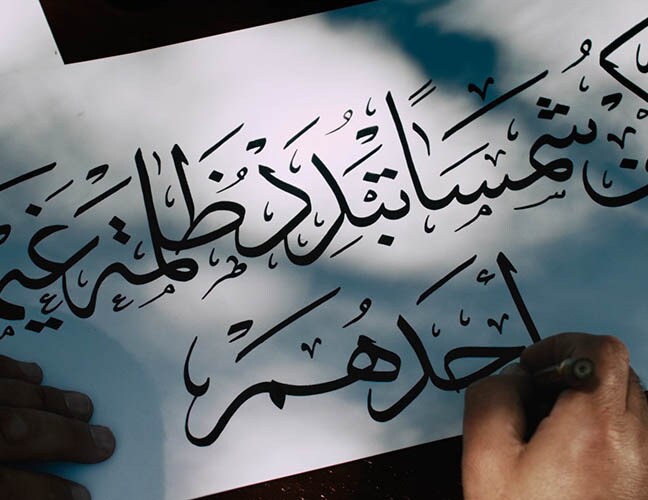 كن شمساً تبدد ظلمة غيم
أحدهم